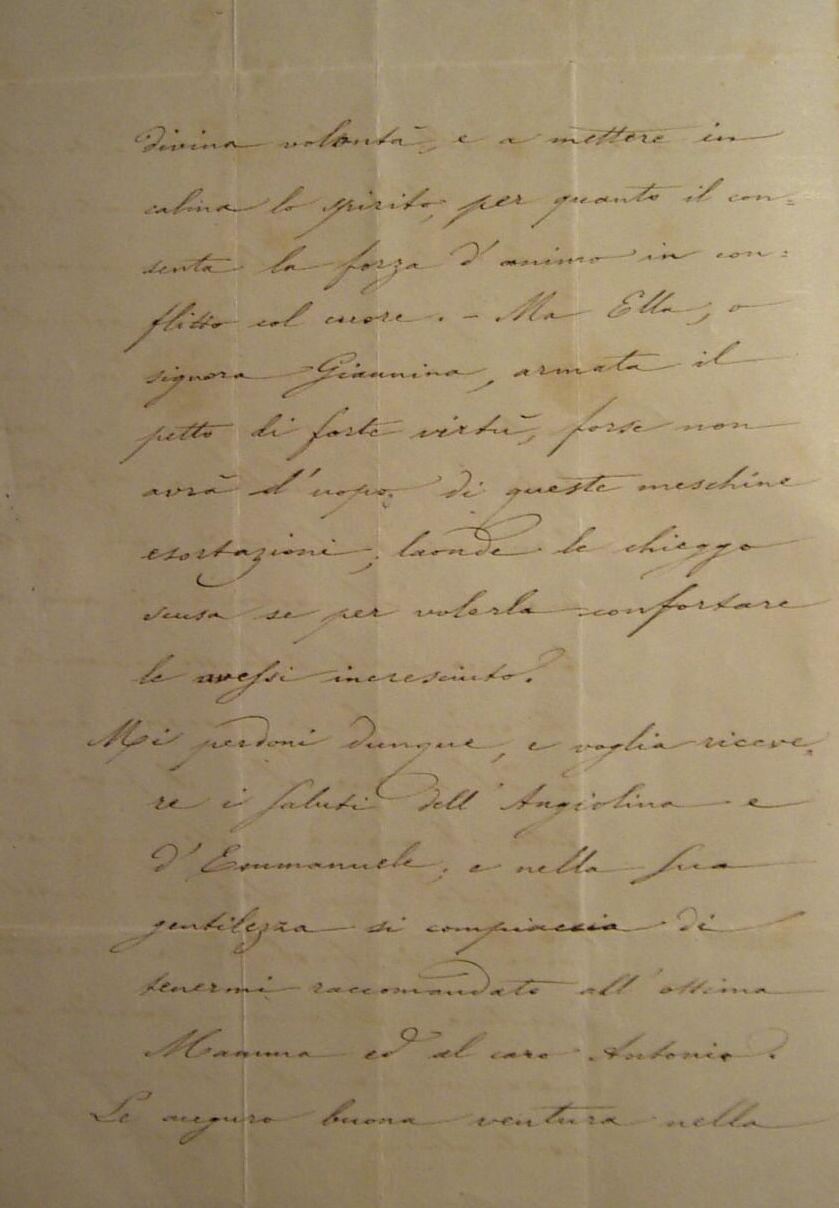 divina volontà, e a mettere in
calma lo spirito, per quanto il con=
senta la forza d'animo in con=
flitto col cuore. - Ma Ella, o
signora Giannina, armata il
petto di forte virtù, forse non
avrà d'uopo di queste meschine
esortazioni; laonde le chieggo
scusa se per volerla confortare
le avessi incresciuto.
Mi perdoni dunque, e voglia riceve=
re i saluti dell'Angiolina e
d'Emmanuele; e nella Sua
gentilezza si compiaccia di
tenermi raccomandato all'ottima
Mamma ed al caro Antonio.
Le auguro buona ventura nella